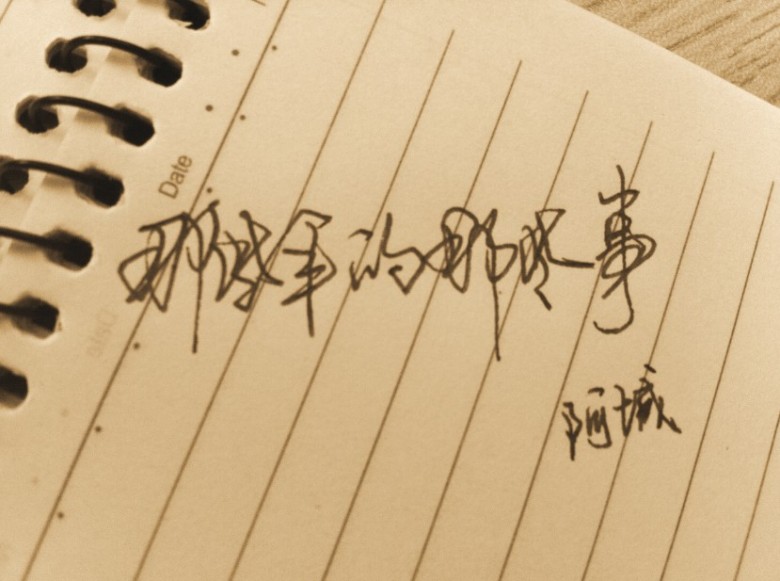 Date
那些年的那些事
阿城
Date